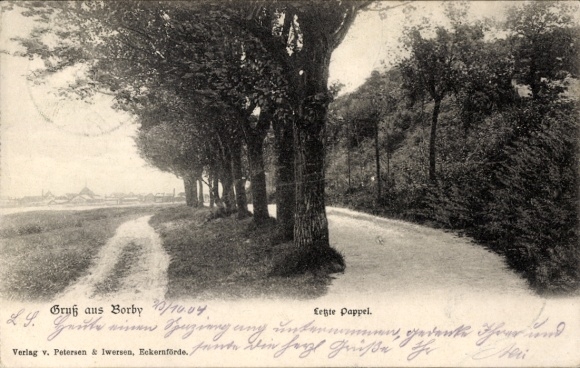 Gruß aus Borby 23/10.04 Letzte Pappel.
L. S. Heute einen Spaziergang unternommen, gedenke Ihrer und
sende die herzl Grüße Ihr
Verlag v. Petersen & Iwersen, Eckernförde.